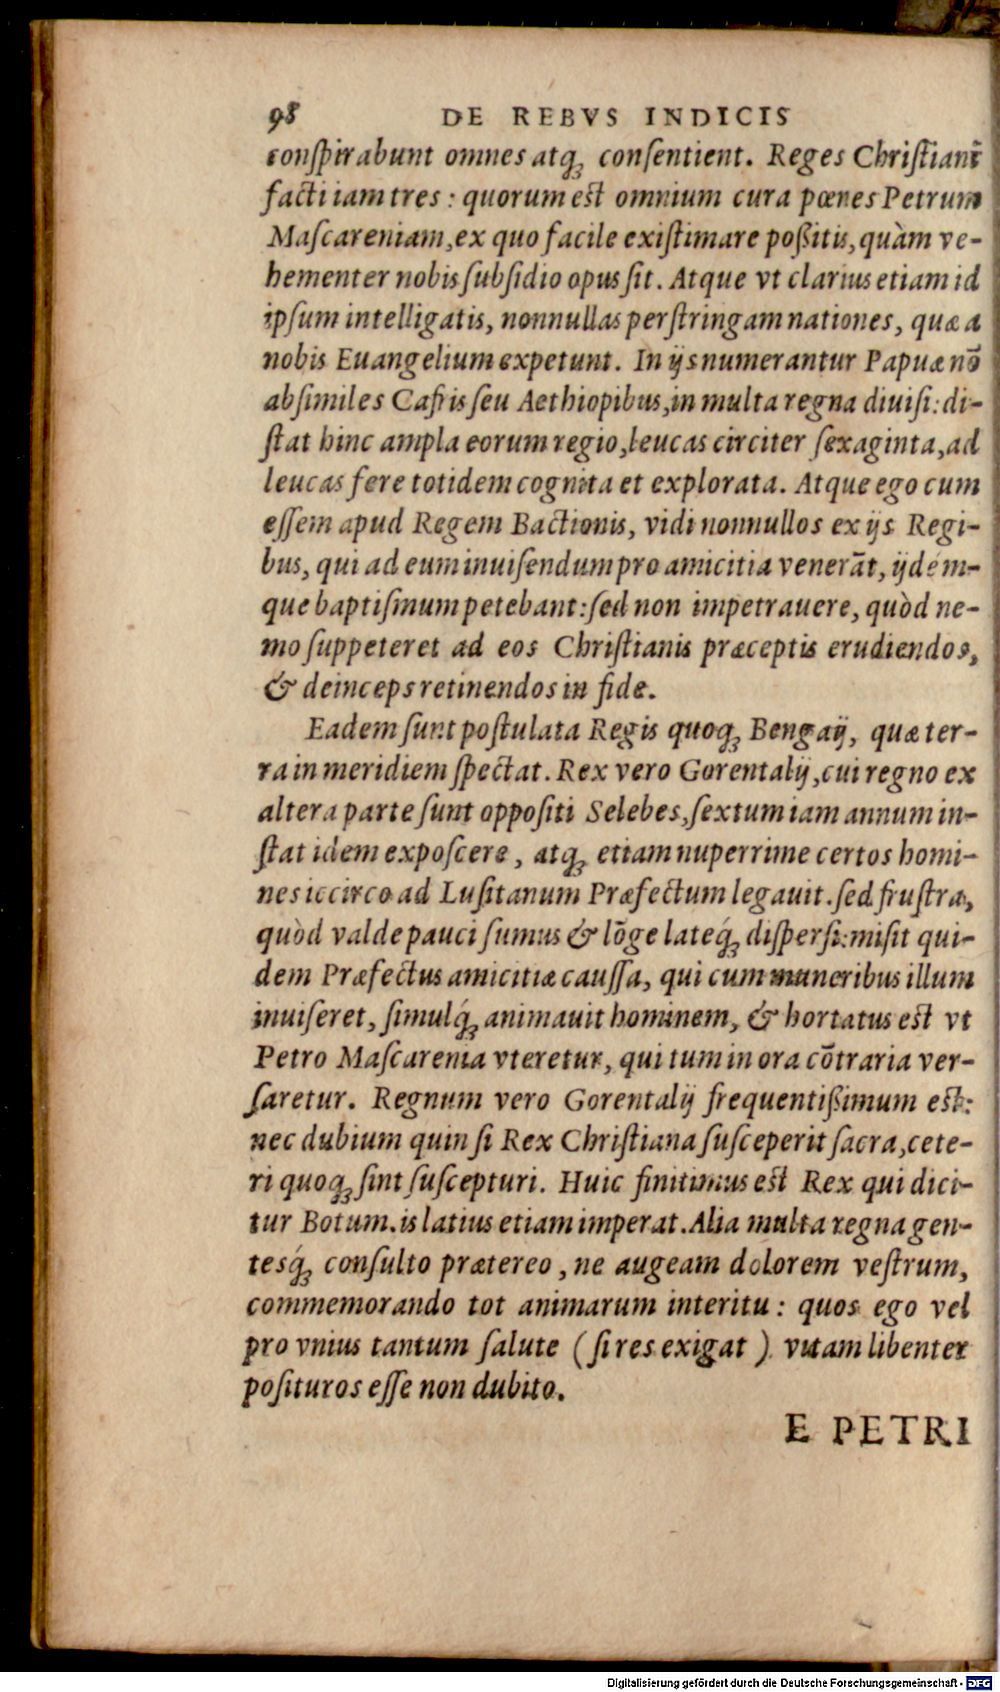 98 DE REBVS INDICIS
conſpirabunt omnes atq́ꝫ conſentient. Reges Chriſtianī
facti iam tres: quorum est omnium cura pœnes Petrum
Maſcareniam, ex quo facile exiſtimare poßitis, quàm ve-
hementer nobis ſubſidio opus ſit. Atque vt clarius etiam id
ipſum intelligatis, nonnullas perſtringam nationes, quæ a
nobis Euangelium expetunt. In ijs numerantur Papuæ nō
abſimiles Cafris ſeu Aethiopibus, in multa regna diuiſi: di-
ſtat hinc ampla eorum regio, leucas circiter ſexaginta, ad
leucas fere totidem cognita et explorata. Atque ego cum
eſſem apud Regem Bactionis, vidi nonnullos ex ijs Regi-
bus, qui ad eum inuiſendum pro amicitia venerāt, ijdem-
que baptiſmum petebant: ſed non impetrauere, quòd ne-
mo ſuppeteret ad eos Chriſtianis præceptis erudiendos,
& deinceps retinendos in fide.
Eadem ſunt poſtulata Regis quoqꝫ Bengaij, quæ ter-
ra in meridiem ſpectat. Rex vero Gorentalij, cui regno ex
altera parte ſunt oppoſiti Selebes, ſextum iam annum in-
ſtat idem expoſcere, atqꝫ etiam nuperrime certos homi-
nes iccirco ad Luſitanum Præfectum legauit. ſed fruſtra,
quòd valde pauci ſumus & lōge lateq́ꝫ diſperſi: miſit qui-
dem Præfectus amicitiæ cauſſa, qui cum muneribus illum
inuiſeret, ſimulq́ꝫ animauit hominem, & hortatus est vt
Petro Maſcarenia vteretur, qui tum in ora cōtraria ver-
ſaretur. Regnum vero Gorentalij frequentißimum est:
nec dubium quin ſi Rex Chriſtiana ſuſceperit ſacra, cete-
ri quoqꝫ ſint ſuſcepturi. Huic finitimus est Rex qui dici-
tur Botum. is latius etiam imperat. Alia multa regna gen-
tesq́ꝫ conſulto prætereo, ne augeam dolorem veſtrum,
commemorando tot animarum interitu: quos ego vel
pro vnius tantum ſalute (ſi res exigat) vitam libenter
poſituros eſſe non dubito.
E PETRI
Digitalisierung gefördert durch die Deutsche Forschungsgemeinschaft - DFG